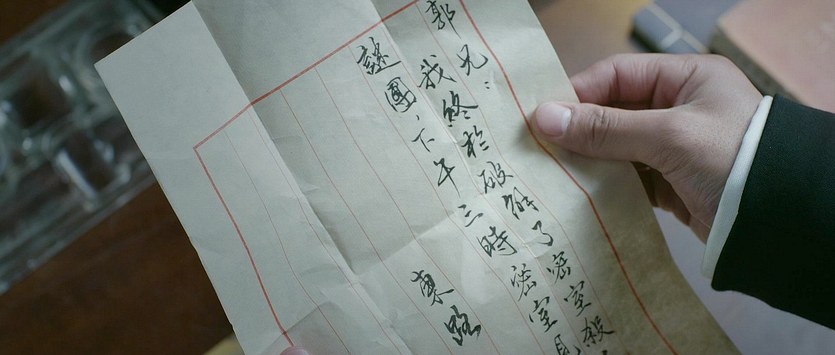 郭兄：
我終於破解了密室殺
謎團，下午三時密室見
東